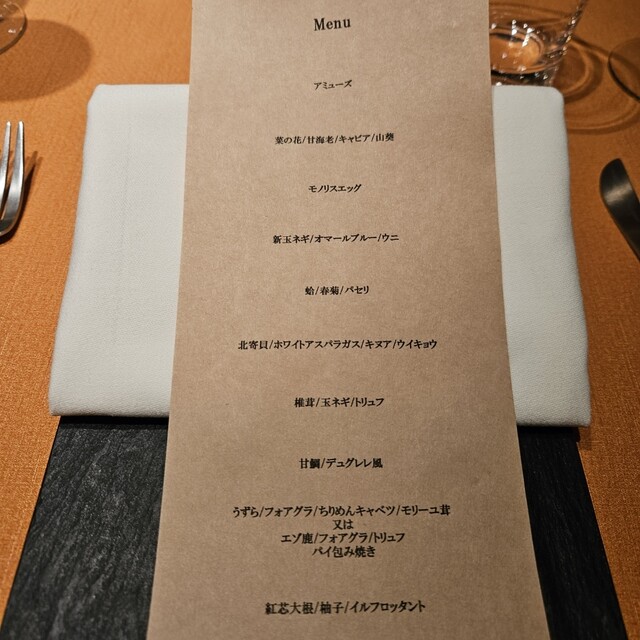 Menu
アミューズ
菜の花/甘海老/キャビア/山葵
モノリスエッグ
新玉ネギ/オマールブルー/ウニ
蛤/春菊/パセリ
北寄貝/ホワイトアスパラガス/キヌア/ウイキョウ
椎茸/玉ネギ/トリュフ
甘鯛/デュグレレ風
うずら/フォアグラ/ちりめんキャベツ/モリーユ茸
又は
エゾ鹿/フォアグラ/トリュフ
パイ包み焼き
紅芯大根/柚子/イルフロッタント